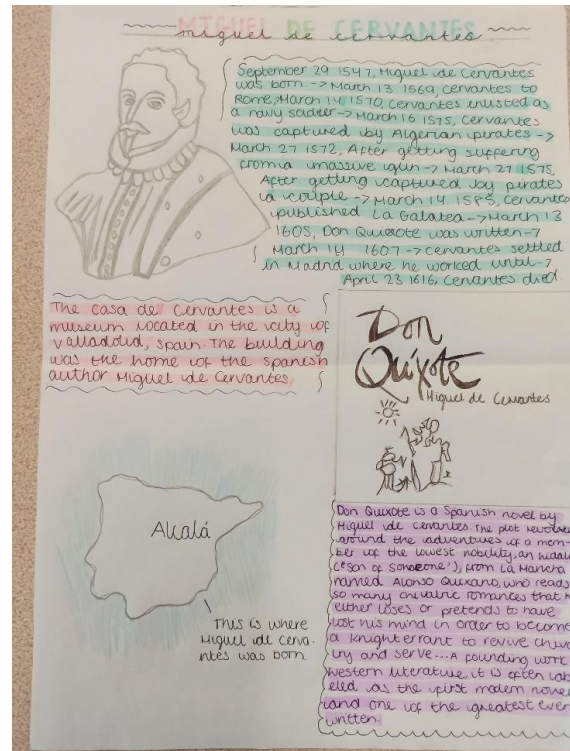 MIGUEL DE CERVANTES
miguel de cervantes
September 29 1547, Miguel de Cervantes
was born -> March 13 1569, cervantes to
Rome, March 14 1570, Cervantes enlisted as
a navy -> March 16 1575, Cervantes
was captured by Algerian pirates ->
March 27 1572, After getting suffering
from a massive gun -> March 27 1575,
After getting captured by pirates
a couple -> March 14 1585, Cervantes
published La Galatea -> March 13
1605, Don Quixote was written ->
March 14 1607 -> cervantes settled
in Madrid where he worked until ->
April 23 1616, Cervantes died.
The casa de Cervantes is a
museum located in the city of
Valladolid, Spain. The building
was the home of the spanish
author Miguel de Cervantes.
Don
Quixote
Miguel de Cervantes
Alcalá
This is where
Miguel de Cerva-
ntes was born.
Don Quixote is a Spanish novel by
Miguel de Cervantes. The plot revolves
around the adventures of a mem-
ber of the lowest nobility, an hidalgo
("son of someone"), from La Mancha
named Alonso Quixano, who reads
so many chivalric romances that he
either loses or pretends to have
lost his mind in order to become
a knight errant to revive chival
ry and serve... A founding work
western literature, it is often lab
eled as the first modern novel
and one of the greatest ever
written.